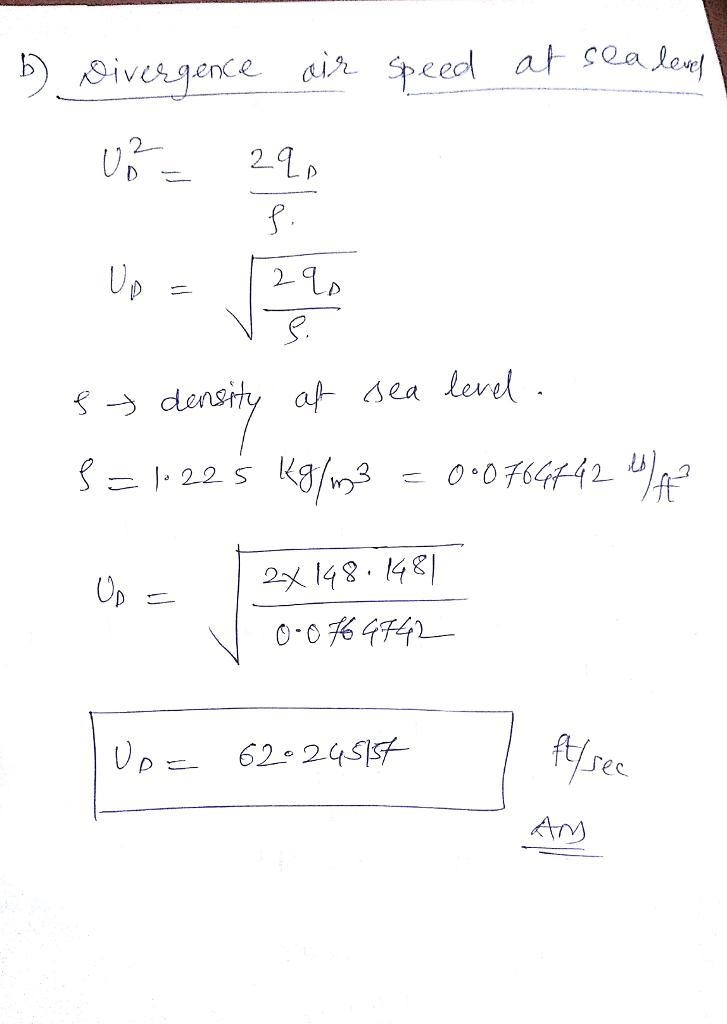 b) Divergence air speed at sea level
U_D² = 2q_D / ρ.
U_D = √(2q_D / ρ.)
ρ → density at sea level.
ρ = 1.225 Kg/m3 = 0.0764742 lb/ft3
U_D = √(2×148.1481 / 0.0764742)
U_D = 62.24557 ft/sec
Ans